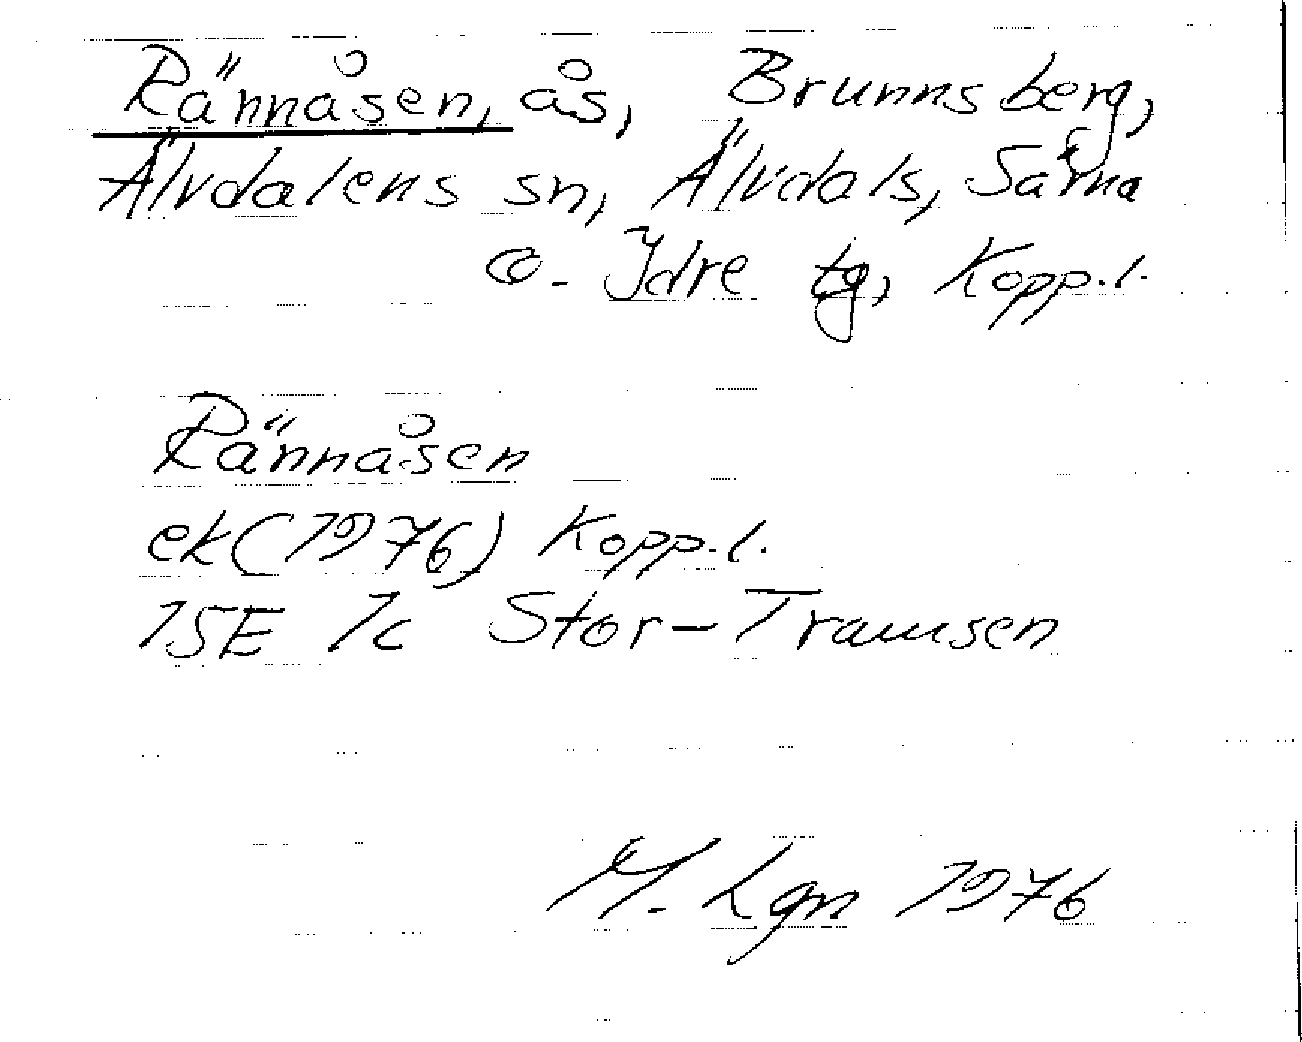 Rännåsen, ås, Brunnsberg,
Älvdalens sn, Älvdals, Särna
o. Idre tg, Kopp.l.
Rännåsen
ek(1976) Kopp.l.
15E 7c Stor-Tramsen
M. Lgn 1976